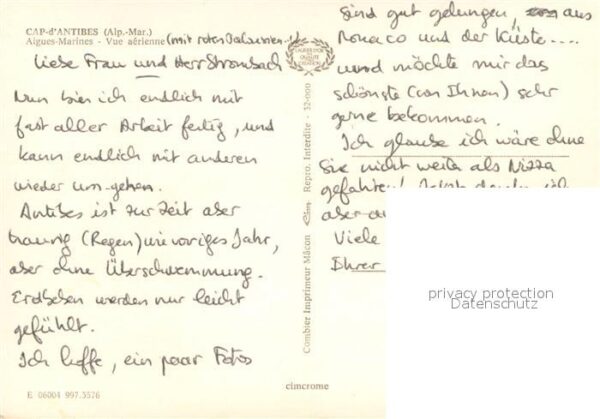 CAP-d'ANTIBES (Alp.-Mar.)
Aigues-Marines - Vue aérienne (mit roten
Liebe Frau und Herr Strombach
Nun bin ich endlich mit
fast aller Arbeit fertig, und
kann endlich mit anderen
wieder um-gehen.
Antibes ist zur Zeit aber
traurig (Regen) wie voriges Jahr,
aber ohne Überschwemmung.
Erdbeben werden nur leicht
gefühlt.
Ich hoffe, ein paar Fotos
E 06004 997.5526
Combier Imprimeur Mâcon
Repro. Interdite - 12-000
cimcrome
sind gut gelungen, aus
Monaco und der Küste....
und möchte mir das
schönste (von Ihnen) sehr
gerne bekommen.
Ich glaube ich wäre ohne
Sie nicht weiter als Nizza
gefahren! ich
aber
Viele
Ihrer
privacy protection
Datenschutz